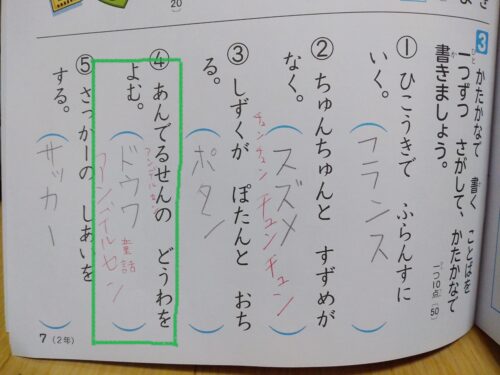 20
3 かたかなで 書く ことばを
一つずつ さがして、かたかなで
書きましょう。
一つ10点(50)
① ひこうきで ふらんすに
いく。
(フランス)
② ちゅんちゅんと すずめが
なく。
(スズメ)
チュンチュン
チュンチュン
③ しずくが ぽたんと おち
る。
(ポタン)
④ あんでるせんの どうわを
よむ。
(ドウワ)
童話
アンデルセン
アンデルセン
⑤ さっかーの しあいを
する。
(サッカー)
7(2年)